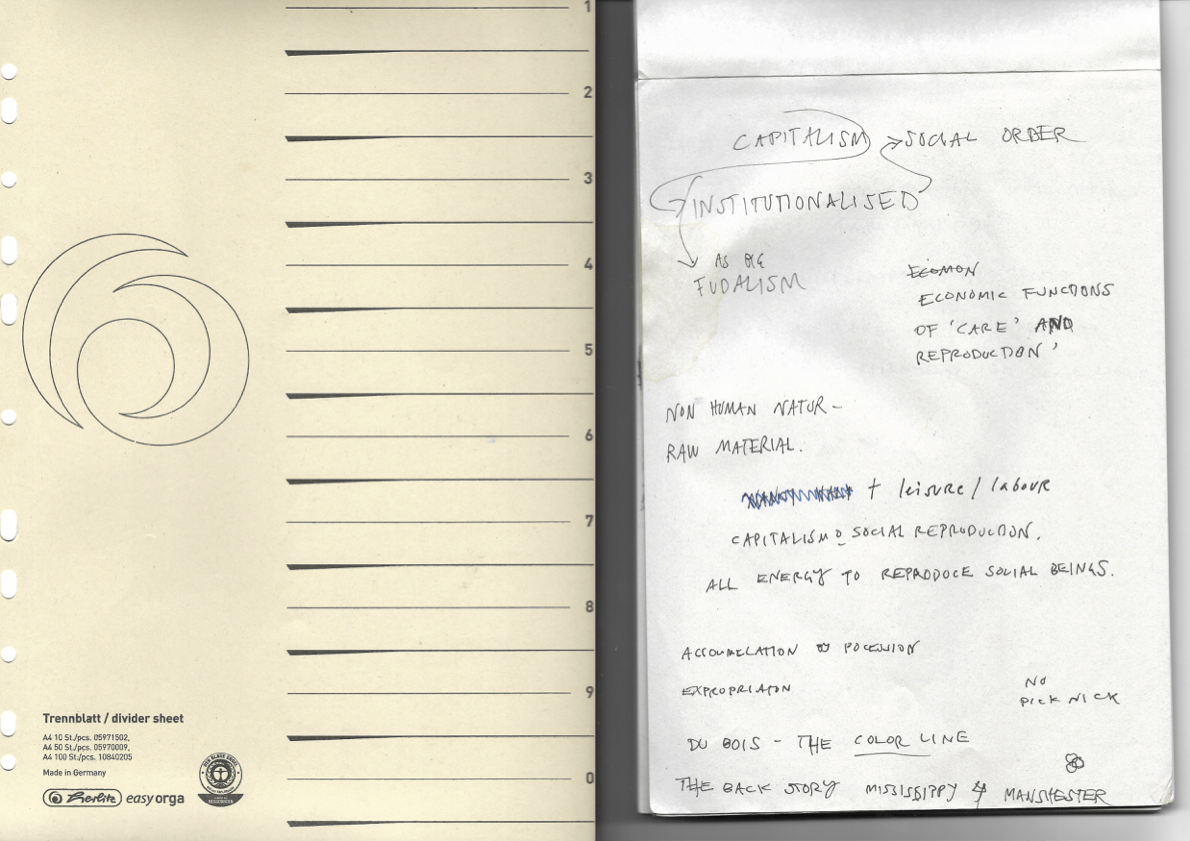 1
2
3
4
5
6
7
8
9
0
Trennblatt / divider sheet
A4 10 St./pcs. 05971502,
A4 50 St./pcs. 05970009,
A4 100 St./pcs. 10840205
Made in Germany
Herlitz easyorga
CAPITALISM SOCIAL ORDER
INSTITUTIONALISED
AS
FUDALISM
ECOMON
ECONOMIC FUNCTIONS
OF 'CARE' AND
REPRODUCTION'
NON HUMAN NATUR -
RAW MATERIAL.
+ leisure / labour
CAPITALISM SOCIAL REPRODUCTION.
ALL ENERGY TO REPRODUCE SOCIAL BEINGS.
ACCOUMELATION
EXPROPRIATION
NO
PICK NICK
DU BOIS - THE COLOR LINE
THE BACK STORY MISSISSIPPY & MANSHESTER